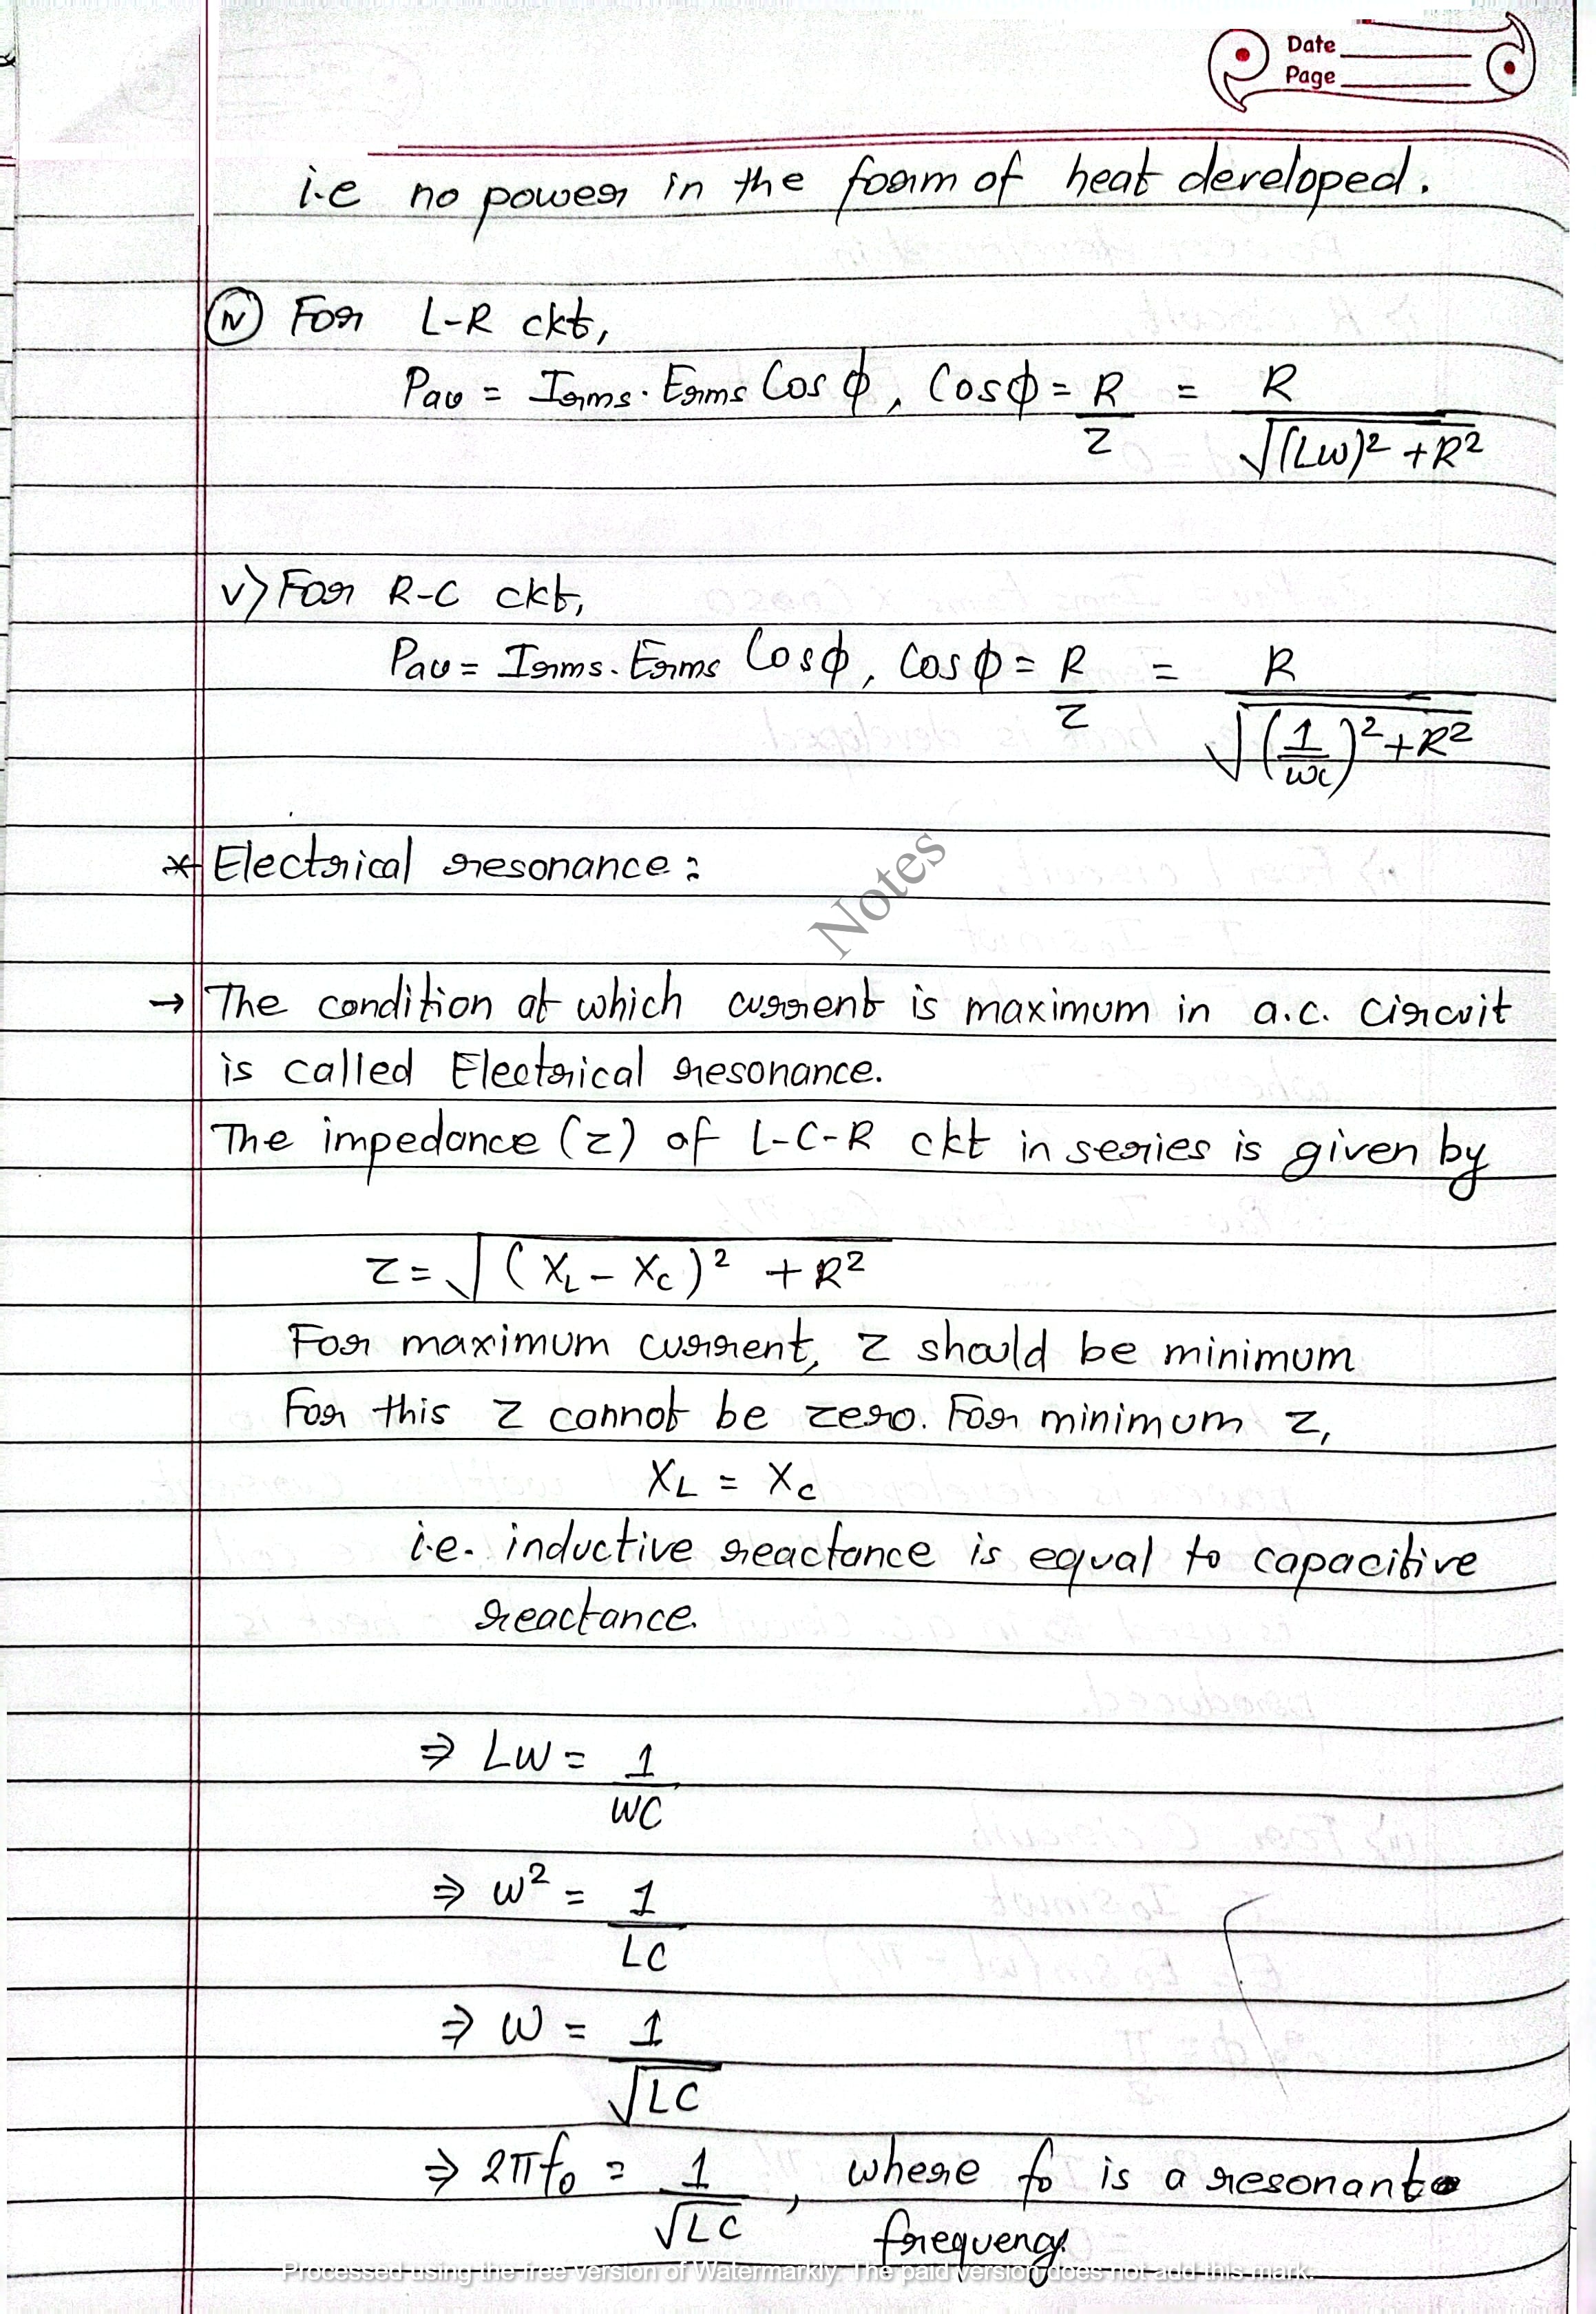 Date
Page
i.e no power in the form of heat developed.
(iv) For L-R ckt,
Pav = Irms. Erms Cos φ, Cosφ = R/Z = R/√((Lω)² + R²)
v) For R-C ckt,
Pav = Irms. Erms Cosφ, Cosφ = R/Z = R/√((1/ωC)² + R²)
* Electrical resonance:
Notes
→ The condition at which current is maximum in a.c. circuit
is called Electrical resonance.
The impedance (Z) of L-C-R ckt in series is given by
Z = √((XL - XC)² + R²)
For maximum current, Z should be minimum
For this Z cannot be zero. For minimum Z,
XL = XC
i.e. inductive reactance is equal to capacitive
reactance.
⇒ Lω = 1/ωC
⇒ ω² = 1/LC
⇒ ω = 1/√LC
⇒ 2πf₀ = 1/√LC, where f₀ is a resonant
frequency.
Processed using the free version of Watermarkly. The paid version does not add this mark.